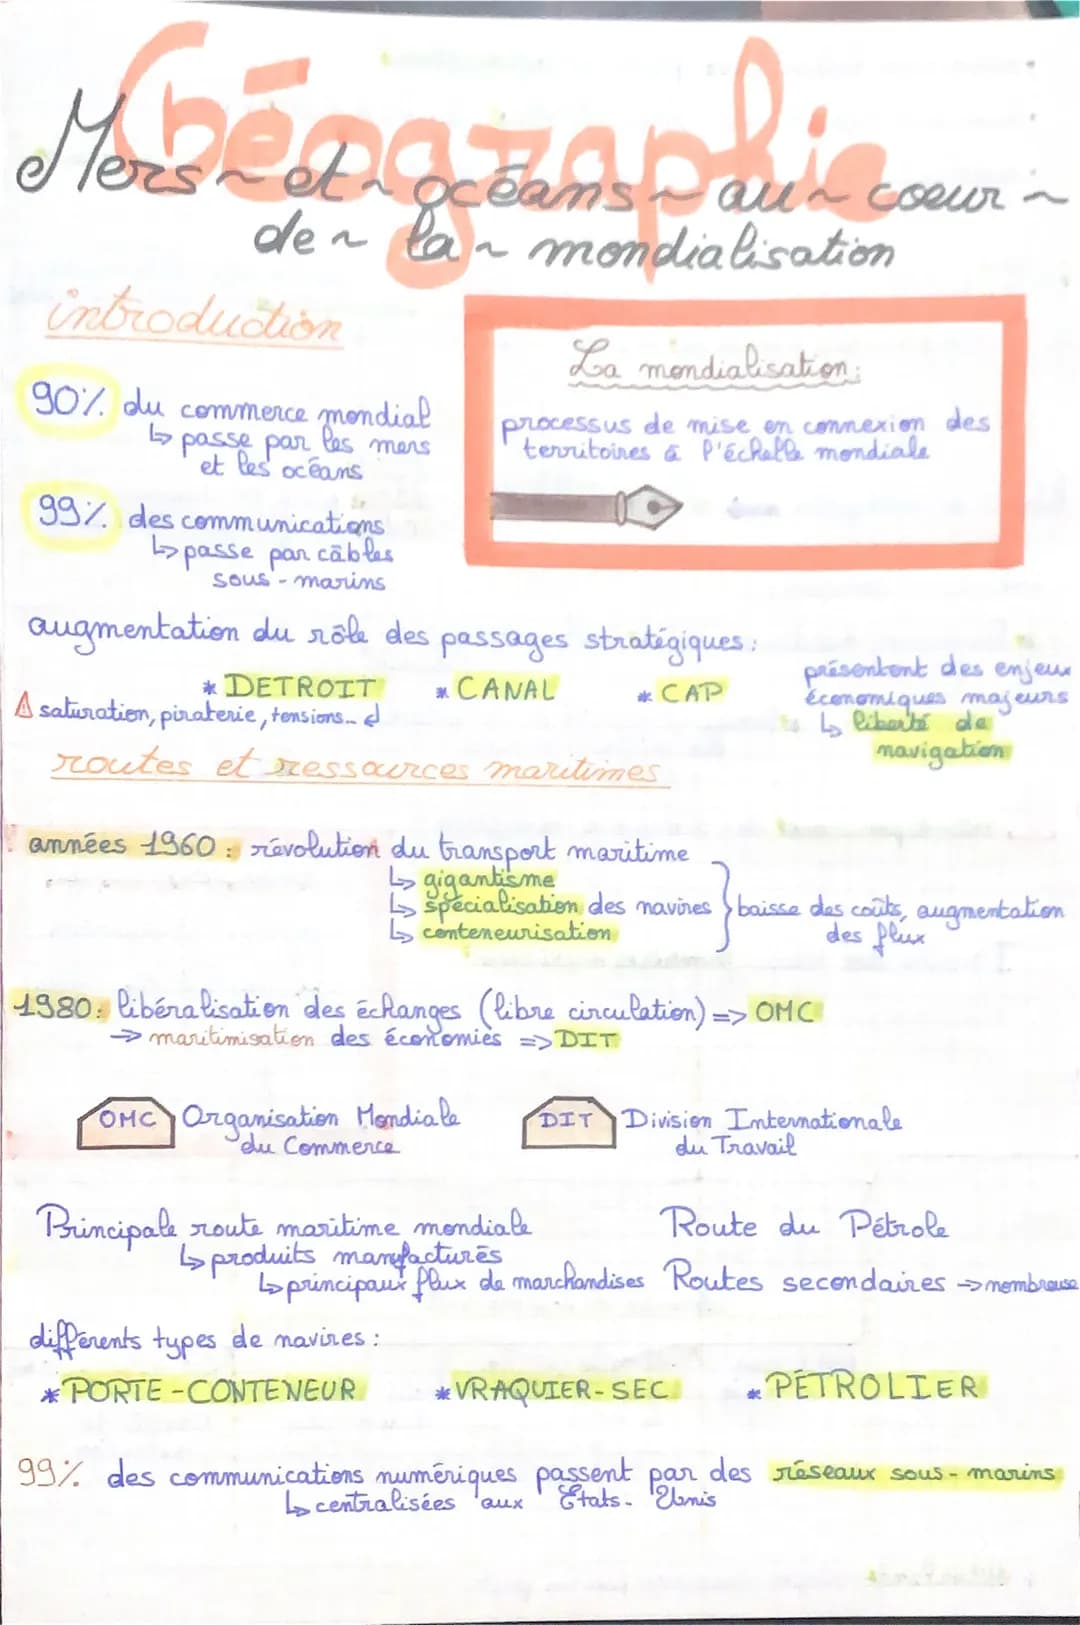 Géographie
Mers ~ et ~ océans ~ au ~ coeur ~
de ~ la ~ mondialisation
introduction
La mondialisation:
processus de mise en connexion des
territoires à l'échelle mondiale
90% du commerce mondial
↳ passe par les mers
et les océans
99% des communications
↳ passe par câbles
sous-marins
augmentation du rôle des passages stratégiques:
* DETROIT * CANAL * CAP
⚠ saturation, piraterie, tensions...
présentent des enjeux
économiques majeurs
↳ liberté de
navigation
routes et ressources maritimes
années 1960: révolution du transport maritime
↳ gigantisme
↳ spécialisation des navires
↳ conteneurisation
} baisse des coûts, augmentation
des flux
1980: libéralisation des échanges (libre circulation) => OMC
→ maritimisation des économies => DIT
OMC Organisation Mondiale
du Commerce
DIT Division Internationale
du Travail
Principale route maritime mondiale
↳ produits manufacturés
↳ principaux flux de marchandises
Route du Pétrole
Routes secondaires → nombreuse
différents types de navires:
* PORTE-CONTENEUR * VRAQUIER-SEC * PÉTROLIER
99% des communications numériques passent par des réseaux sous-marins
↳ centralisées aux États-Unis